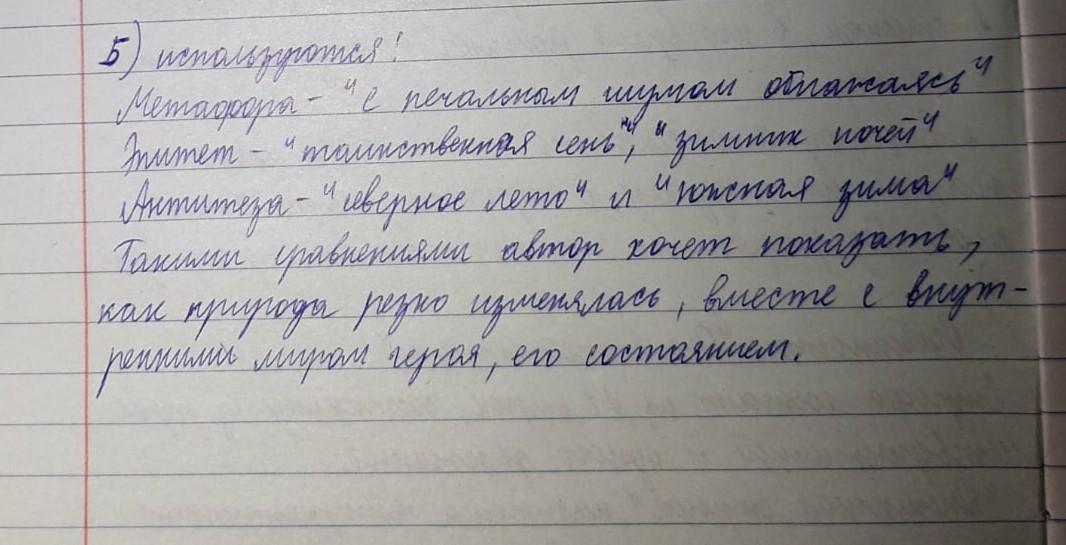 Б) используются!
Метафора - "с печальным шумом обнажаясь"
Эпитет - "таинственная сень", "зимних ночей"
Антитеза - "северное лето" и "южная зима"
Такими сравнениями автор хочет показать,
как природа резко изменялась, вместе с внут-
ренними миром героя, его состоянием.